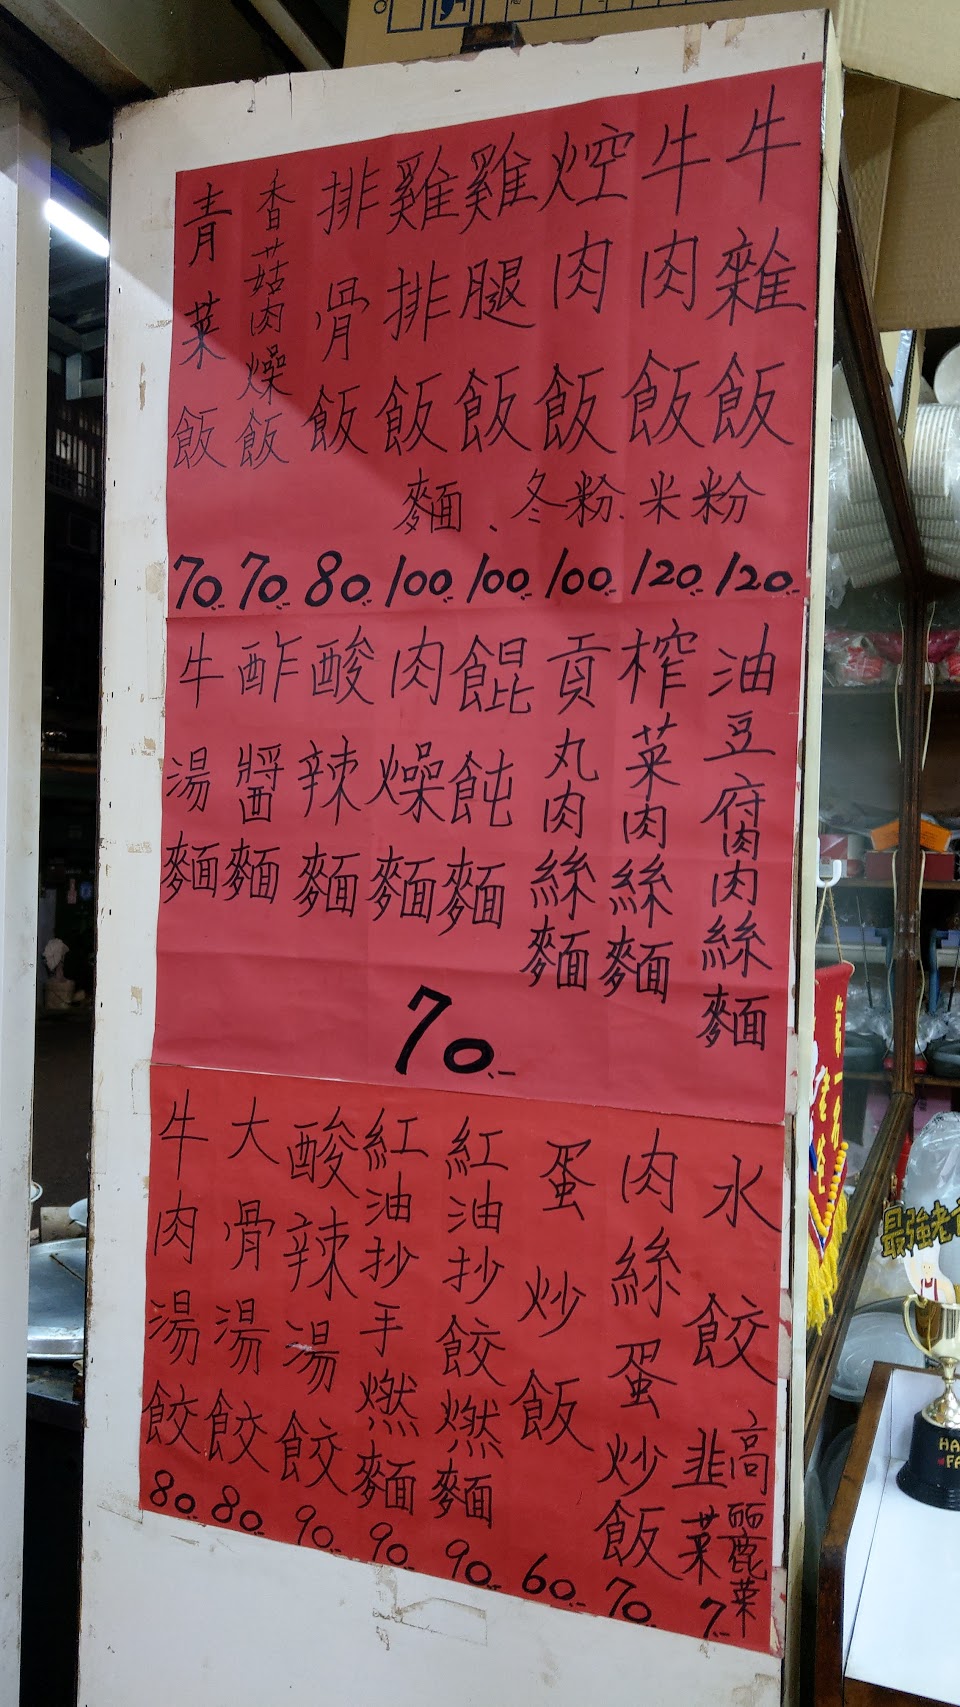 牛雜飯 120.-
牛肉飯 120.-
焢肉飯 100.-
雞腿飯 100.-
雞排飯 100.-
排骨飯 80.-
香菇肉燥飯 70.-
青菜飯 70.-
麵、冬粉、米粉
油豆腐肉絲麵
榨菜肉絲麵
貢丸肉絲麵
餛飩麵
肉燥麵
酸辣麵
酢醬麵
牛湯麵
70.-
水餃 高麗菜 韭菜 7.-
肉絲蛋炒飯 70.-
蛋炒飯 60.-
紅油抄餃燃麵 90.-
紅油抄手燃麵 90.-
酸辣湯餃 90.-
大骨湯餃 80.-
牛肉湯餃 80.-
第一名
最強老
HA
FA